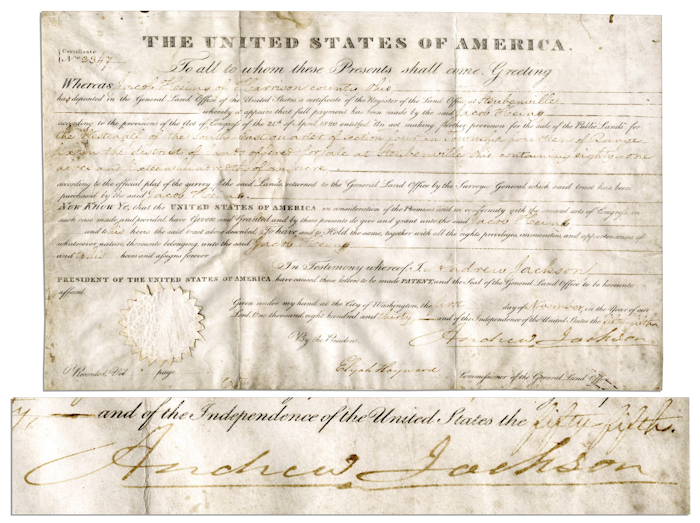 THE UNITED STATES OF AMERICA.
Certificate
No. 2347
To all to whom these Presents shall come, Greeting
Whereas Jacob of Harrison county Ohio
has deposited in the General Land Office of the United States, a certificate of the Register of the Land Office at Steubenville
whereby it appears that full payment has been made by the said Jacob
according to the provisions of the Act of Congress of the 24th of April 1820 entitled "An act making further provision for the sale of the Public Lands" for
the of the South East quarter of section in township of Range
in the district of Lands offered for sale at Steubenville Ohio containing eighty one
acres and hundredths of an acre
according to the official plat of the survey of the said Lands returned to the General Land Office by the Surveyor General, which said tract has been
purchased by the said Jacob
NOW KNOW YE, that the UNITED STATES OF AMERICA in consideration of the Premises, and in conformity with the several acts of Congress, in
such case made and provided, have Given and Granted, and by these presents do give and grant unto the said Jacob
and to his heirs the said tract above described: To have and to Hold the same, together with all the rights, privileges, immunities, and appurtenances of
whatsoever nature, thereunto belonging, unto the said Jacob
and to his heirs and assigns forever.
In Testimony whereof, I, Andrew Jackson
PRESIDENT OF THE UNITED STATES OF AMERICA have caused these letters to be made PATENT, and the Seal of the General Land Office to be hereunto
affixed.
Given under my hand, at the City of Washington, the day of in the Year of our
Lord One thousand eight hundred and thirty and of the Independence of the United States the fifty fifth
Andrew Jackson
By the President
Elijah Hayward Commissioner of the General Land Office
Recorded, Vol page
and of the Independence of the United States the fifty fifth.
Andrew Jackson